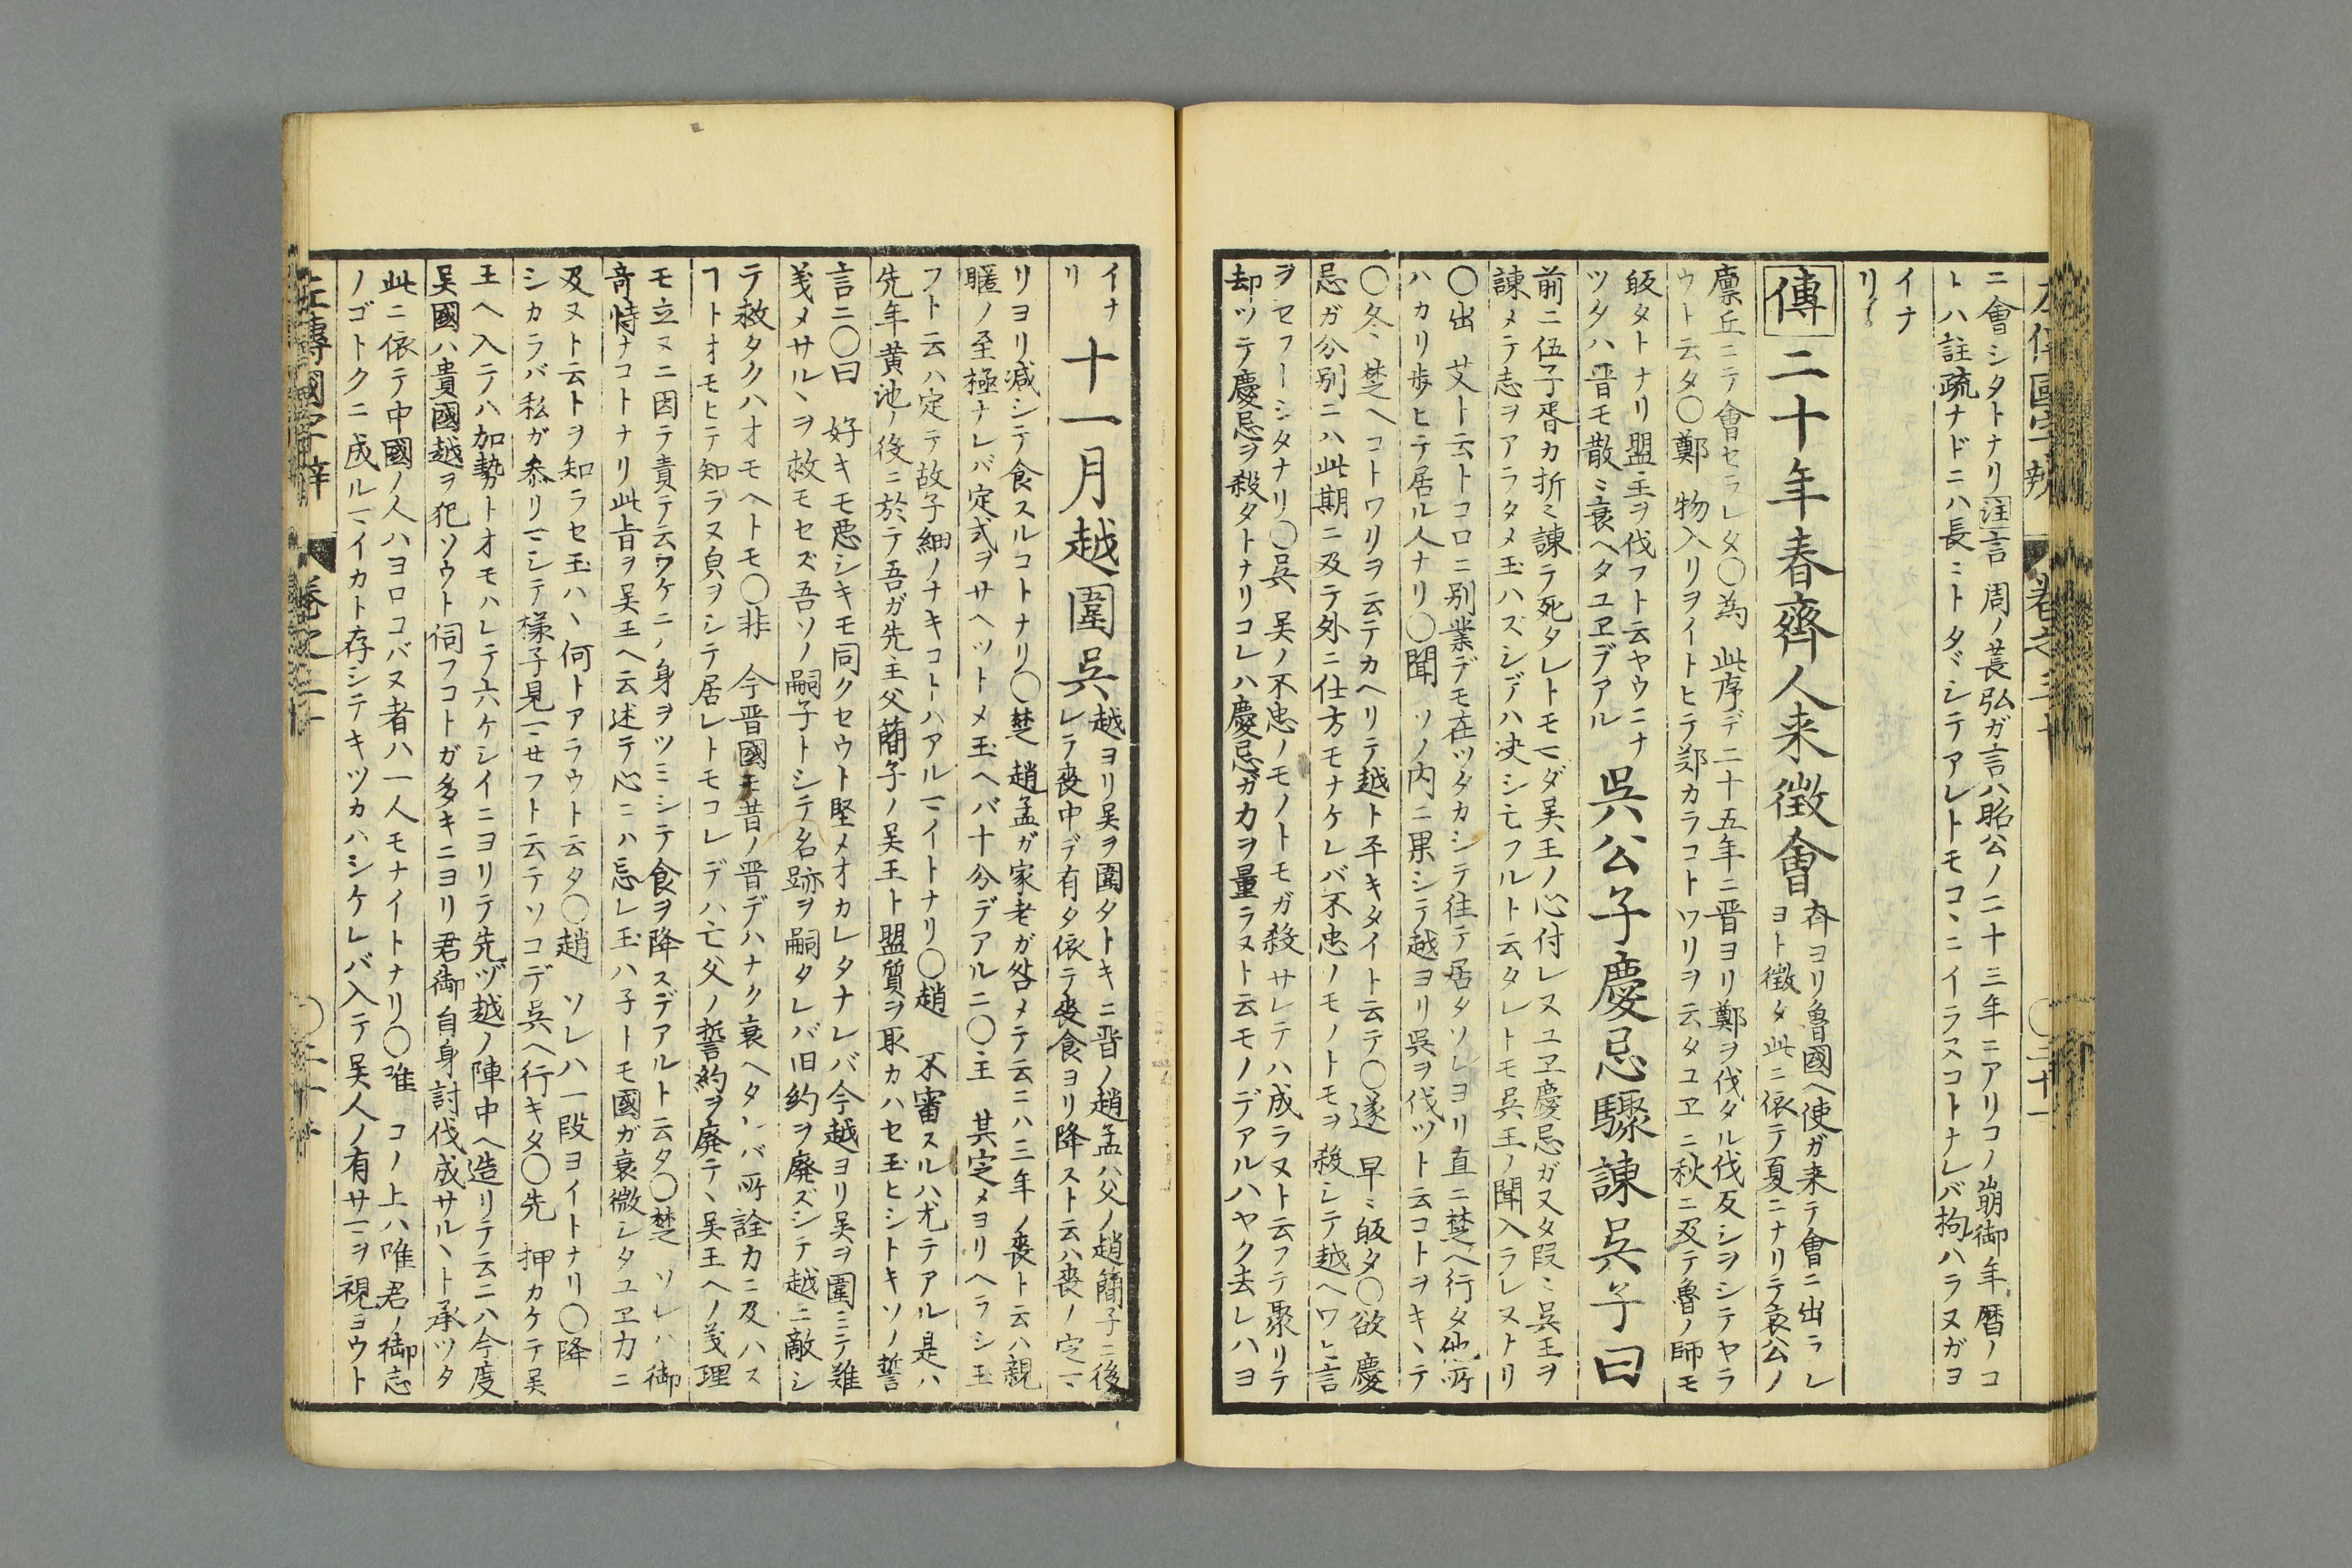 左傳國字辨 卷之三十 〇三十一
ニ會シタトナリ注言 周ノ萇弘ガ言ハ昭公ノ二十三年ニアリコノ崩御年暦ノコ
トハ註疏ナドニハ長〻トタヾシテアレトモコヽニイラヌコトナレバ拘ハラヌガヨ
イナ
リ
傳二十年春齊人来徴會
斉ヨリ魯國ヘ使ガ来テ會ニ出ラレ
ヨト徴タ此ニ依テ夏ニナリテ哀公ノ
廪丘ニテ會セラレタ〇為 此序デニ十五年ニ晋ヨリ鄭ヲ伐タル伐反シヲシテヤラ
ウト云タ〇鄭 物入リヲイトヒテ郑カラコトワリヲ云タユヱニ秋ニ及テ魯ノ師モ
皈タトナリ盟主ヲ伐フト云ヤウニナ
ツタハ晋モ散〻衰ヘタユヱデアル
呉公子慶忌驟諫呉子曰
前ニ伍子胥カ折〻諫テ死タレトモマダ吴王ノ心付レヌユヱ慶忌ガ又タ段〻呉王ヲ
諫メテ志ヲアラタメ玉ハズンデハ决シテ亡フルト云タレトモ呉王ノ聞入ラレヌトリ
〇出 艾ト云トコロニ别業デモ在ツタカシテ往テ居タソレヨリ直ニ楚ヘ行タ他所
ハカリ歩ヒテ居ル人ナリ〇聞 ソノ内ニ果シテ越ヨリ呉ヲ伐ツト云コトヲキヽテ
〇冬 楚ヘコトワリヲ云テカヘリテ越ト平キタイト云テ〇遂 早〻皈タ〇欲 慶
忌ガ分别ニハ此期ニ及テ外ニ仕方モナケレバ不忠ノモノトモヲ殺シテ越ヘワヒ言
ヲセフーシタナリ〇呉 呉ノ不忠ノモノトモガ殺サレテハ成ラヌト云フテ聚リテ
却ツテ慶忌ヲ殺タトナリコレハ慶忌ガカヲ量ラヌト云モノデアルハヤク去レハヨ
イナ
リ
十一月越圍呉
越ヨリ吴ヲ圍タトキニ晋ノ趙孟ハ父ノ趙簡子ニ後
レテ喪中デ有タ依テ喪食ヨリ降ストハ喪ノ定マ
リヨリ减シテ食スルコトナリ〇楚 趙孟ガ家老ガ咎メテ云ニハ三年ノ喪ト云ハ親
暱ノ至極ナレバ定式ヲサヘツトメ玉ヘバ十分デアルニ〇主 其定メヨリヘラシ玉
フト云ハ定テ故子細ノナキコトハアルマイトナリ〇趙 不審スルハ尤テアル是ハ
先年黄池ノ後ニ於テ吾ガ先主父簡子ノ吴王ト盟質ヲ取カハセ玉ヒシトキソノ誓
言ニ〇曰 好キモ悪シキモ同クセウト堅メオカレタナレバ今越ヨリ吴ヲ圍ミテ難
義メサルヽヲ救モセズ吾ソノ嗣子トシテ名跡ヲ嗣タレバ旧約ヲ廃ズシテ越ニ敵シ
テ救タクハオモヘトモ〇非 今晋國モ昔ノ晋デハナク衰ヘタレバ所詮カニ及ハス
ヿトオモヒテ知ラヌ㒵ヲシテ居レトモコレデハ亡父ノ誓約ヲ廃テヽ吴王ヘノ義理
モ立ヌニ因テ責テ云ワケニノ身ヲツミシテ食ヲ降スデアルト云タ〇楚 ソレハ御
奇特ナコトナリ此旨ヲ吴王ヘ云述テ心ニハ忘レ玉ハ子トモ國ガ衰微シタユヱカニ
及ヌト云トヲ知ラセ玉ハヽ何トアラウト云タ〇趙 ソレハ一段ヨイトナリ〇降
シカラバ私ガ参リマシテ様子見マセフト云テソコデ呉ヘ行キタ〇先 押カケテ吴
王ヘ入テハ加勢トオモハレテ六ケシイニヨリテ先ヅ越ノ陣中ヘ造リテ云ニハ今度
吴國ハ貴國越ヲ犯ソウト伺フコトガ多キニヨリ君御自身討伐成サルヽト承ツタ
此ニ依テ中國ノ人ハヨロコバヌ者ハ一人モナイトナリ〇唯 コノ上ハ唯君ノ御志
ノゴトクニ成ルマイカト存シテキツカハシケレバ入テ吴人ノ有サマヲ視ヨウト
左傳國字辨 卷之三十